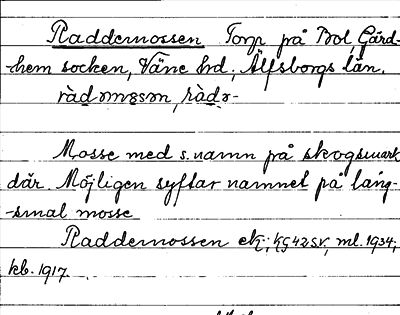 Raddernossen Torp på Bol, Gärd-
-hem socken, Väne hd, Älfsborgs län.
Mosse med s. namn på skogsmark
där. Möjligen syftar namnet på lång-
-smal mosse
Raddernossen ek; KG42SV, ml. 1934;
kb. 1917